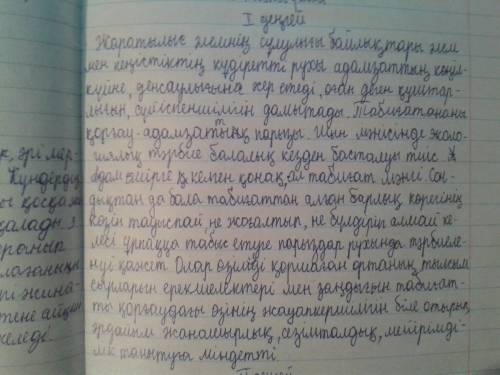 І деңгей
Жаратылыс әлемінің сұлулығы байлықтары мем
мен кеңістіктің құдіретті рухы адамзаттың көңіл-
күйіне, денсаулығына әсер етеді, оған деген құштар-
лығын, сүйіспеншілігін дамытады. Табиғат-ананы
қорғау-адамзаттық парызы. Шын мәнісінде эколо-
гиялық тәрбие балалық кезден басталуы тиіс.
Адам өмірге келген қонақ, ал табиғат мәңгі Сон-
дықтан да бала табиғаттан алған барлық көрегінің
көзін тауыспай, не жоғалтып, не бүлдіріп алмай ке-
лесі ұрпаққа табыс етуге парыздар рухында тәрбиеле-
нуі қажет. Олар өзімізді қоршаған ортаның тылсым
сырларын ерекшеліктері мен заңдығын табиғат-
ты қорғаудағы өзінің жауапкершілігін біле отырып,
әрдайым жанашырлық, сезімталдық, мейірімді-
лік танытуға міндетті.
к, әрі
Күндердің
ы қосқа
қалады
оранып
келеді